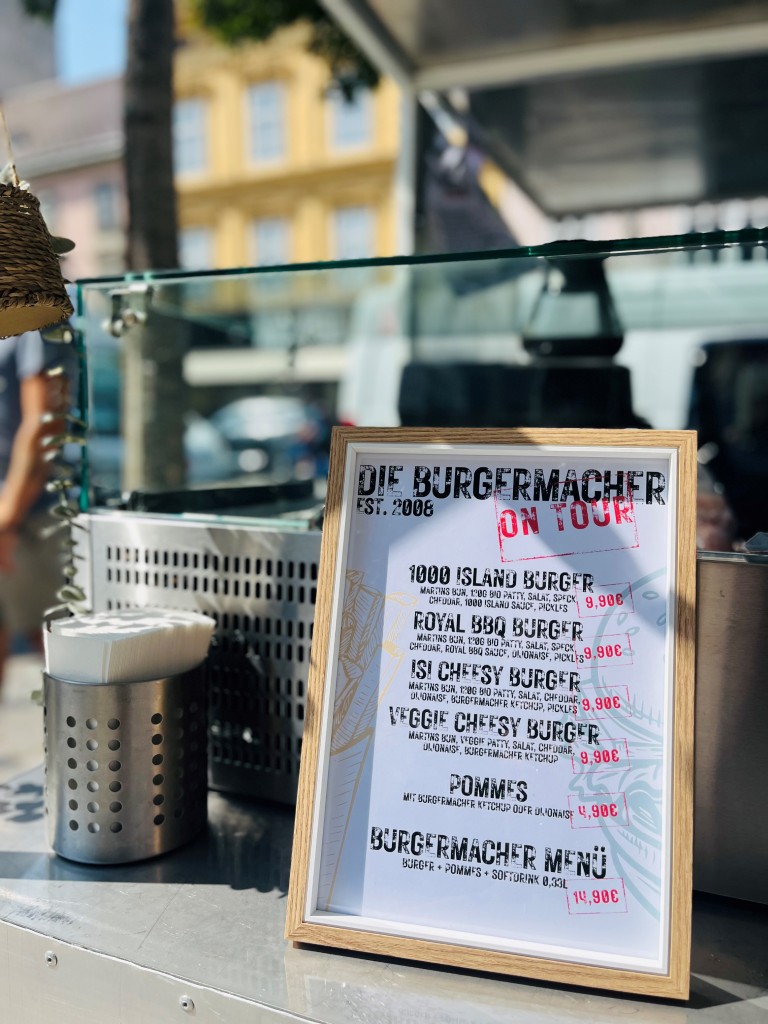 DIE BURGERMACHER
EST. 2008
ON TOUR
1000 ISLAND BURGER
MARTINS BUN, 120G BIO PATTY, SALAT, SPECK,
CHEDDAR, 1000 ISLAND SAUCE, PICKLES
9,90€
ROYAL BBQ BURGER
MARTINS BUN, 120G BIO PATTY, SALAT, SPECK,
CHEDDAR, ROYAL BBQ SAUCE, DIJONAISE, PICKLES
9,90€
ISI CHEESY BURGER
MARTINS BUN, 120G BIO PATTY, SALAT, CHEDDAR,
DIJONAISE, BURGERMACHER KETCHUP, PICKLES
9,90€
VEGGIE CHEESY BURGER
MARTINS BUN, VEGGIE PATTY, SALAT, CHEDDAR,
DIJONAISE, BURGERMACHER KETCHUP
9,90€
POMMES
MIT BURGERMACHER KETCHUP ODER DIJONAISE
4,90€
BURGERMACHER MENÜ
BURGER + POMMES + SOFTDRINK 0,33L
14,90€